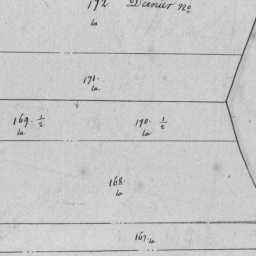 172 Dernier no
la
171.
la
169. 1/2
la
170. 1/2
la
168.
la
167. la